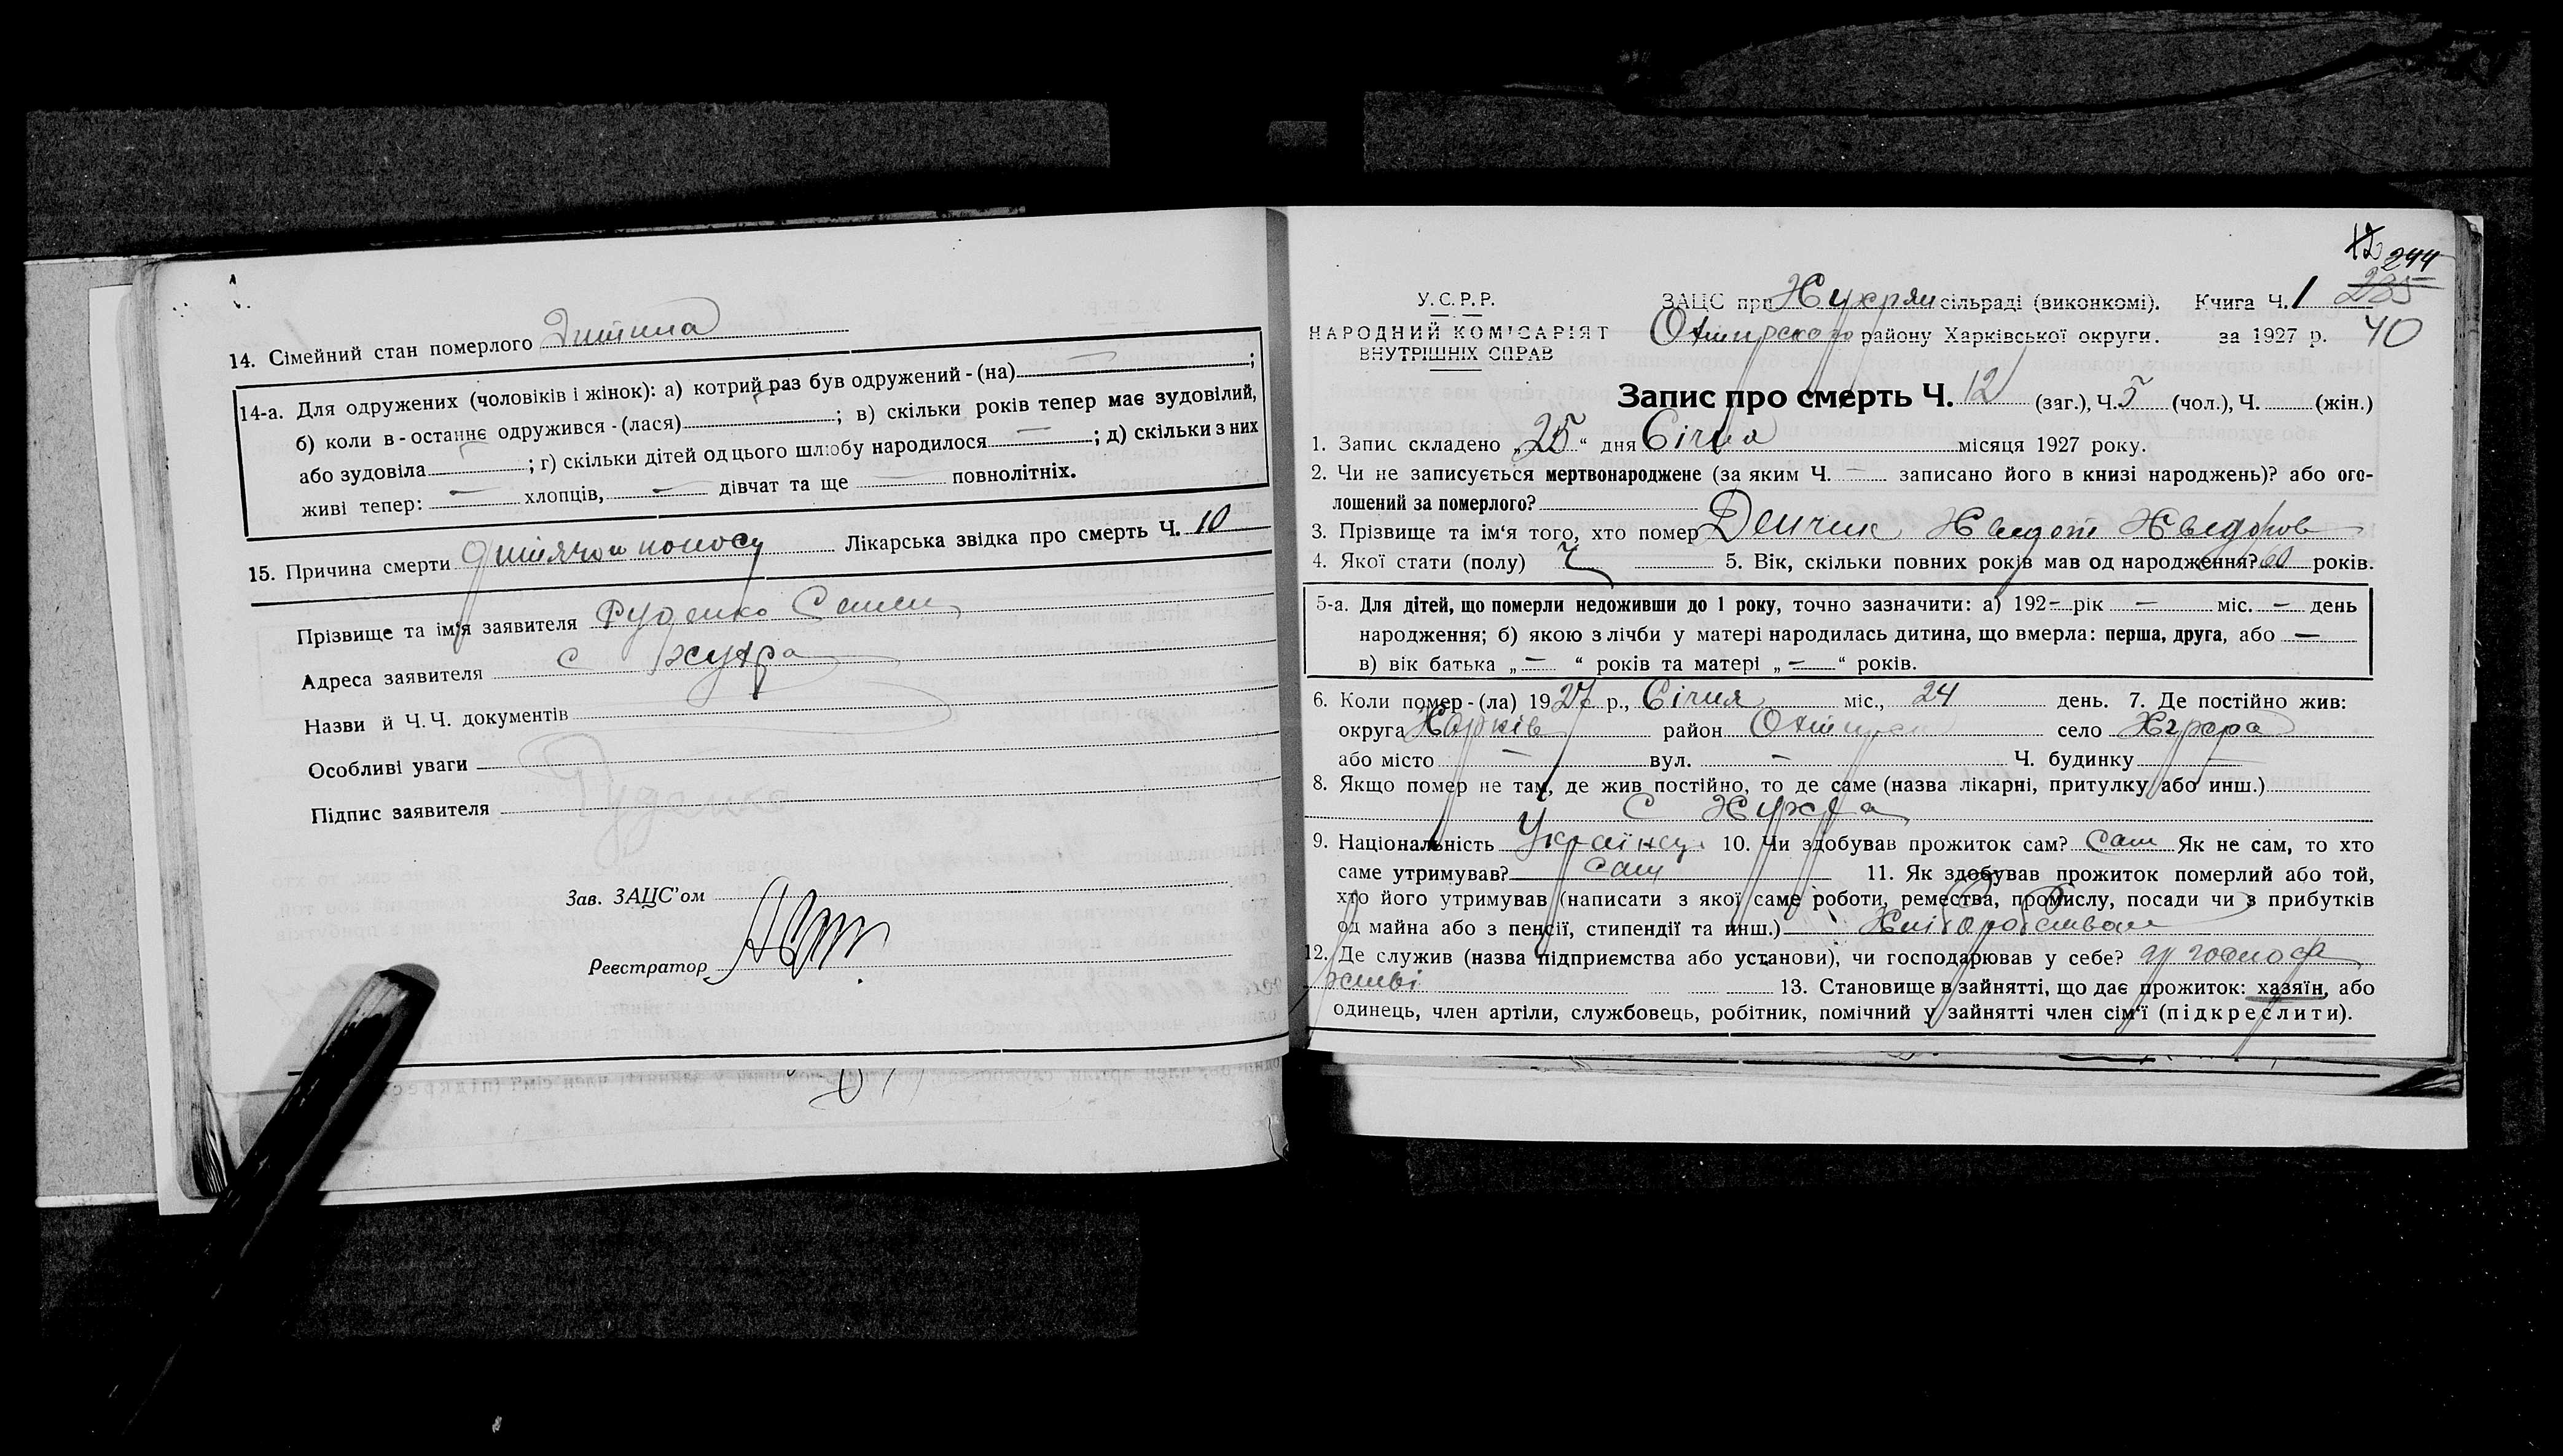 14. Сімейний стан померлого Дитина
14-а. Для одружених (чоловіків і жінок): а) котрий раз був одружений - (на) — ;
б) коли в - останнє одружився - (лася) ; в) скільки років тепер має зудовілий,
або зудовіла ; г) скільки дітей од цього шлюбу народилося — ; д) скільки з них
живі тепер: — хлопців, — дівчат та ще — повнолітніх.
15. Причина смерти поносу Лікарська звідка про смерть Ч. 10
Прізвище та ім'я заявителя Руденко Семен
Адреса заявителя с
Назви й Ч. Ч. документів
Особливі уваги
Підпис заявителя Руденко
Зав. ЗАЦС'ом
Реєстратор
12 244
У. С. Р. Р. ЗАЦС при сільраді (виконкомі). Книга Ч. 1 235
НАРОДНИЙ КОМІСАРІЯТ району Харківської округи. за 1927 р. 40
ВНУТРІШНІХ СПРАВ
Запис про смерть Ч. 12 (заг.), Ч. 5 (чол.), Ч. (жін.)
1. Запис складено „25“ дня Січня місяця 1927 року.
2. Чи не записується мертвонароджене (за яким Ч. — записано його в книзі народжень)? або ого-
лошений за померлого?
3. Прізвище та ім'я того, хто помер
4. Якої стати (полу) Ч 5. Вік, скільки повних років мав од народження? 60 років.
5-а. Для дітей, що померли недоживши до 1 року, точно зазначити: а) 192— рік — міс. — день
народження; б) якою з лічби у матері народилась дитина, що вмерла: перша, друга, або —
в) вік батька „—“ років та матері „—“ років.
6. Коли помер - (ла) 1927 р., Січня міс., 24 день. 7. Де постійно жив:
округа Харків район село
або місто — вул. — Ч. будинку —
8. Якщо помер не там, де жив постійно, то де саме (назва лікарні, притулку або инш.)
С
9. Національність 10. Чи здобував прожиток сам? Сам Як не сам, то хто
саме утримував? Сам 11. Як здобував прожиток померлий або той,
хто його утримував (написати з якої саме роботи, ремества, промислу, посади чи з прибутків
од майна або з пенсії, стипендії та инш.)
12. Де служив (назва підприємства або установи), чи господарював у себе?
13. Становище в зайнятті, що дає прожиток: хазяїн, або
одинець, член артіли, службовець, робітник, помічний у зайнятті член сім'ї (підкреслити).